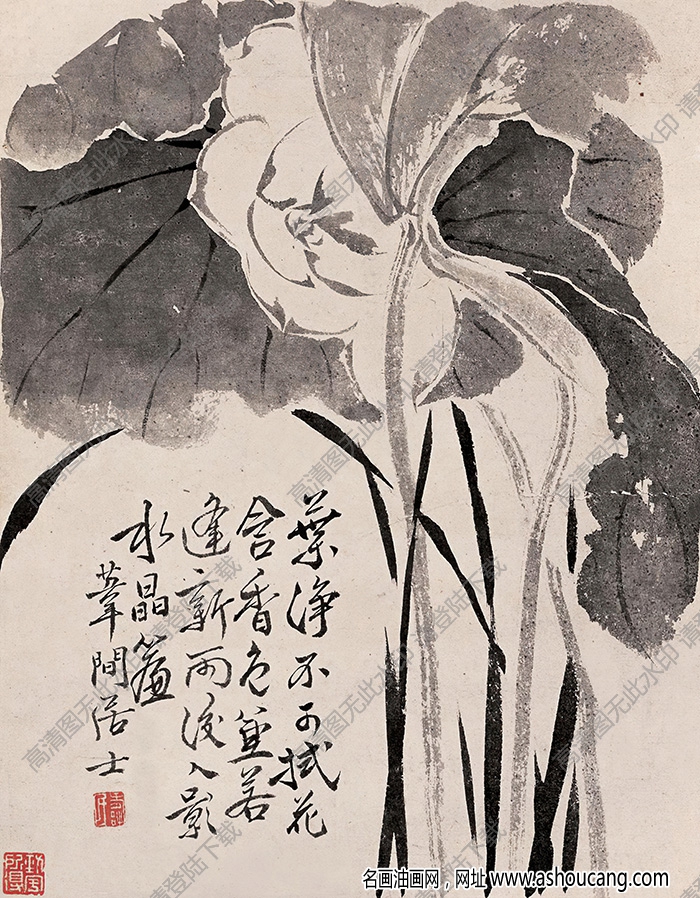 葉淨不可拭花
含香色兼若
逢新雨後人影
水晶簾
葦間居士
名画油画网,网址 www.ashoucang.com
高清图无此水印 请登陆下载